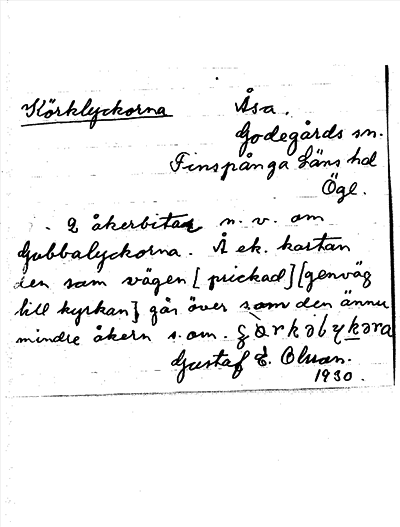 Körklyckorna Åsa.
Godegårds sn.
Finspånga läns hd
Ögl.
2 åkerbitar n. v. om
Gubbalyckorna. Å ek. kartan
den som vägen [prickad] [genväg
till kyrkan] går över som den ännu
mindre åkern s. om.
Gustaf E. Olsson.
1930.